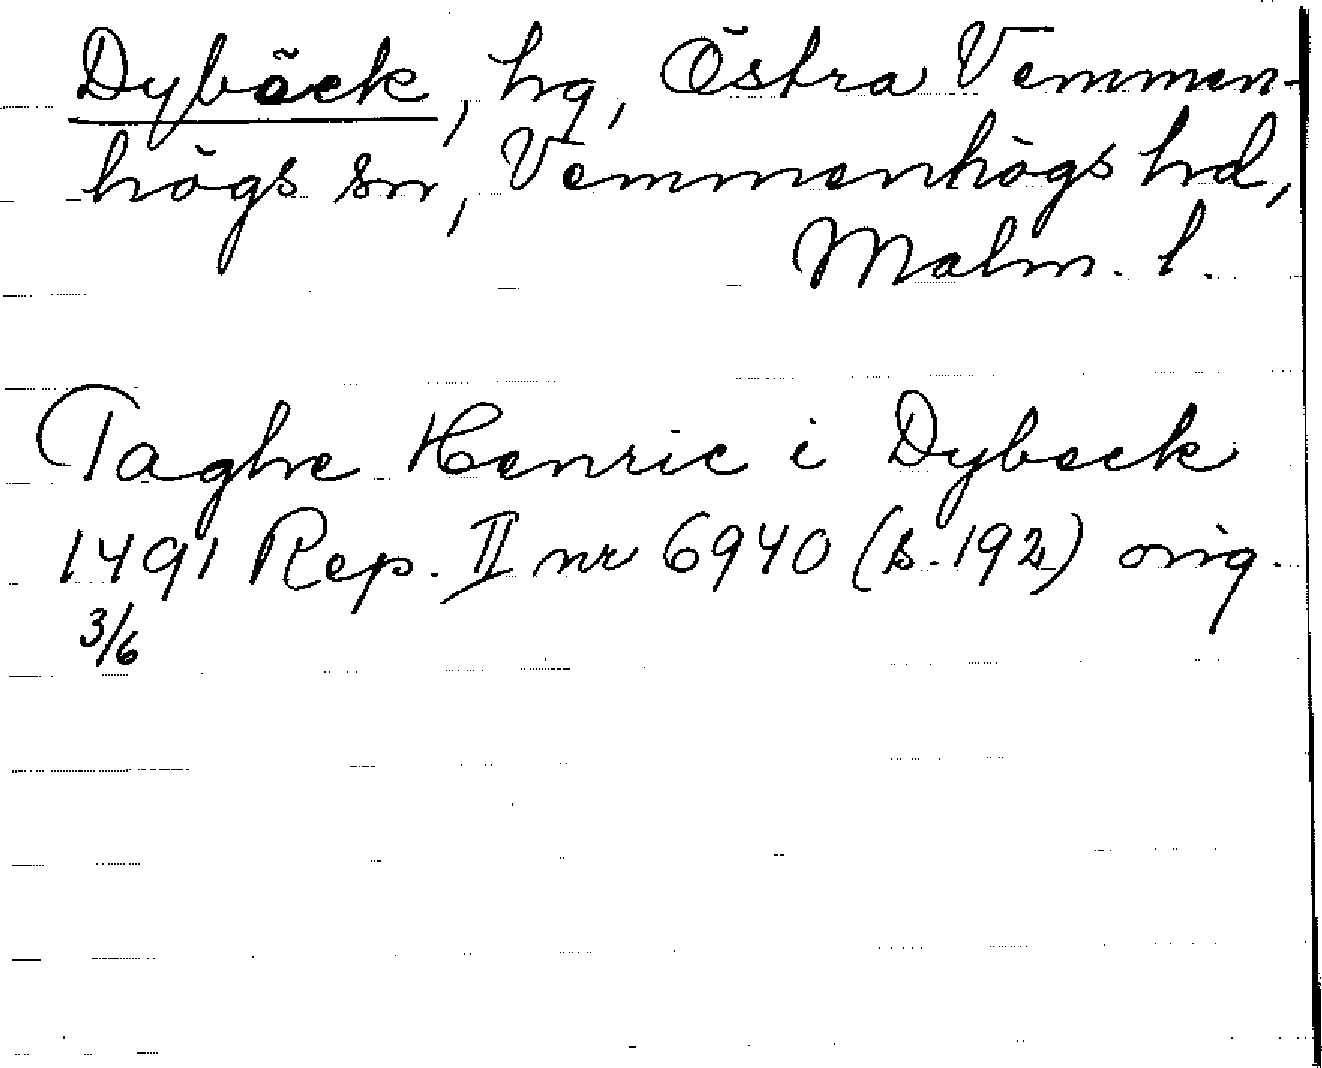 Dybäck, hg, Östra Vemmen-
högs sn, Vemmenhögs hd,
Malm. l.
Taghe Henric i Dybeck
1491 Rep. II nr 6940 (s. 192) orig.
3/6